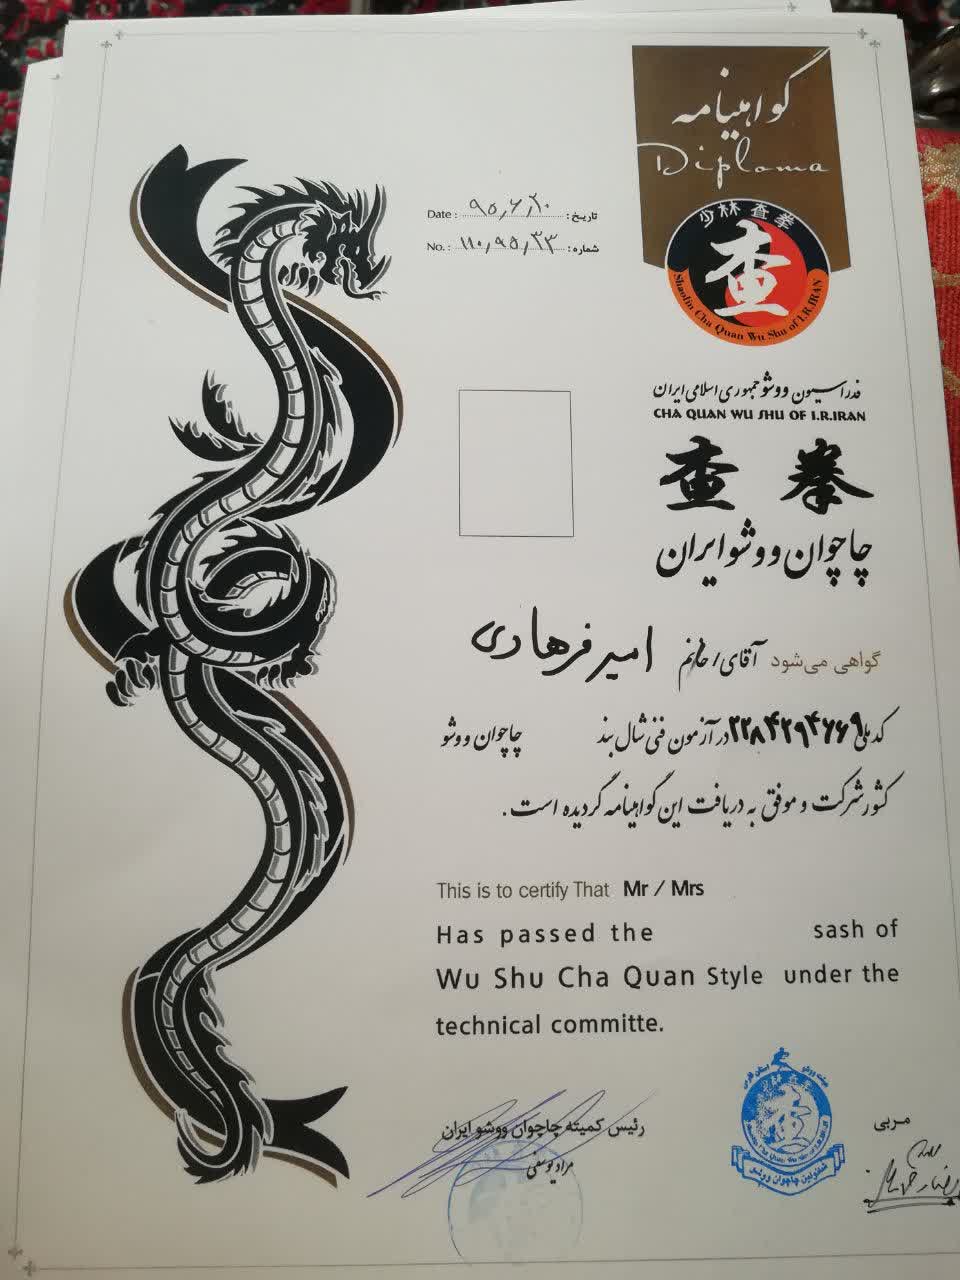 گواهینامه
Diploma
少林查拳
查
Shaolin Cha Quan Wu Shu of I.R.IRAN
Date : ۹۵٫۶٫۲۰ تاریخ :
No. : ۱۱۰٫۹۵٫۳۳ شماره :
فدراسیون ووشو جمهوری اسلامی ایران
CHA QUAN WU SHU OF I.R.IRAN
查 拳
چاچوان ووشو ایران
گواهی می‌شود آقای/خانم امیر فرهادی
کدملی ۲۲۸۴۲۹۴۷۶۹ در آزمون فنی شال بند چاچوان ووشو
کشور شرکت و موفق به دریافت این گواهینامه گردیده است .
This is to certify That Mr / Mrs
Has passed the sash of
Wu Shu Cha Quan Style under the
technical committe.
رئیس کمیته چاچوان ووشو ایران
مراد یوسفی
مربی